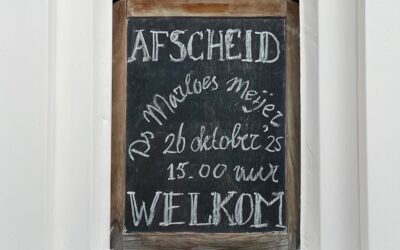 AFSCHEID
Ds Marloes Meijer
26 oktober '25
15.00 uur
WELKOM